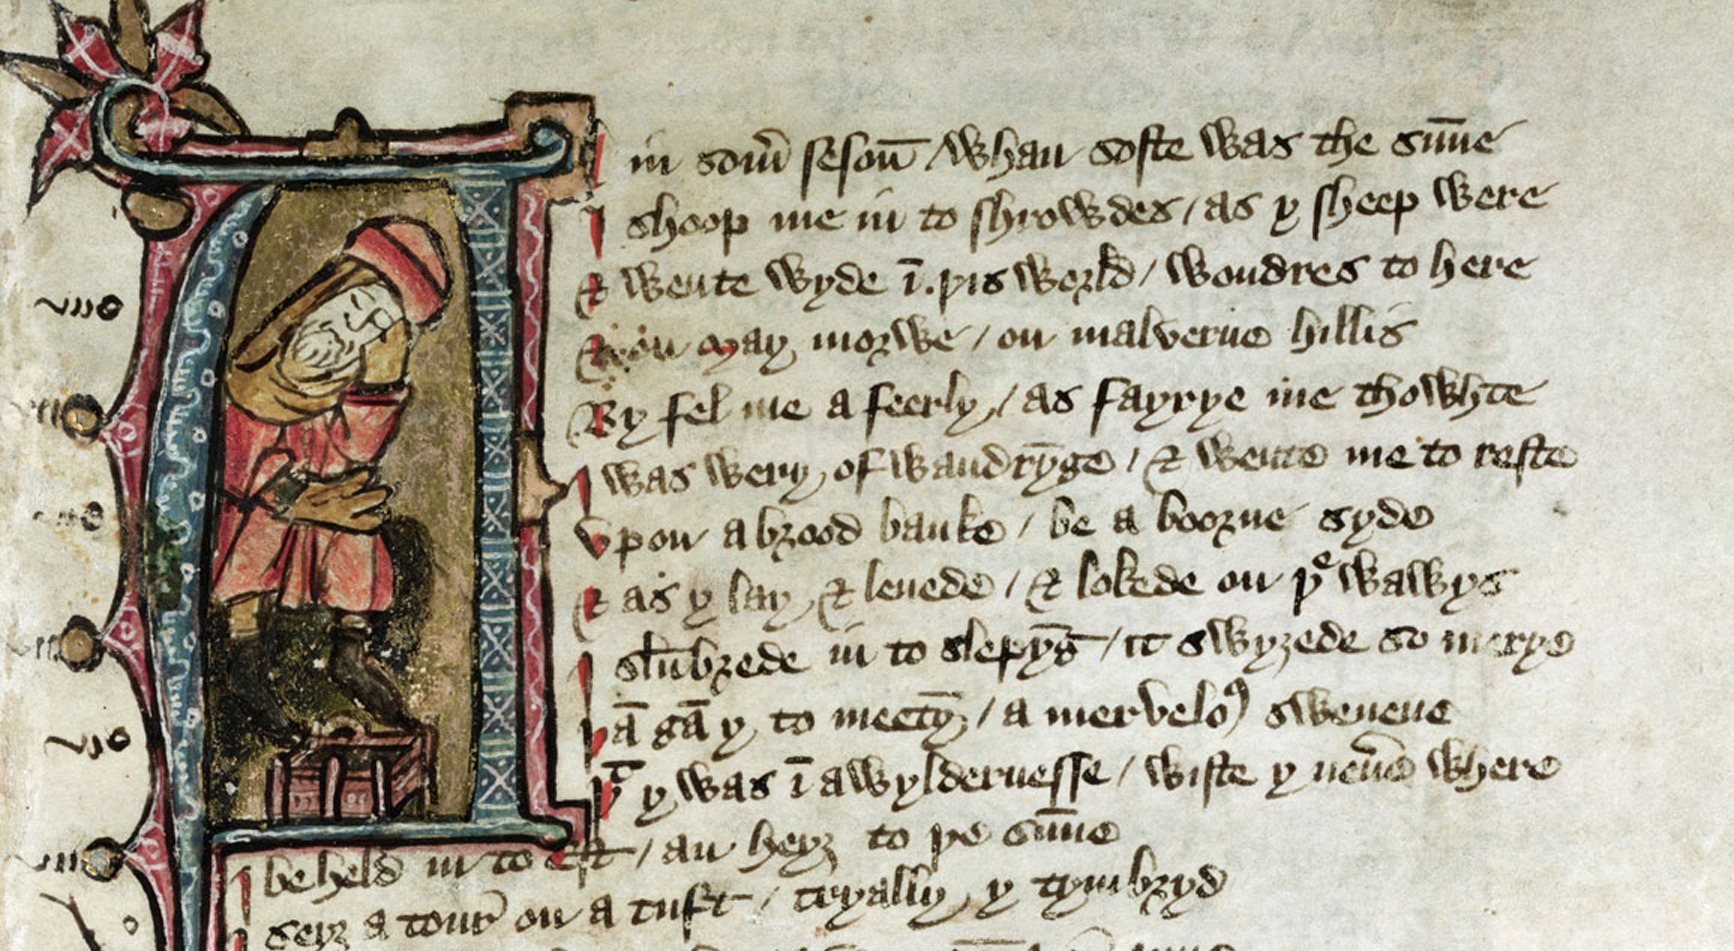 in som̄ sesoū / whan softe was the sūne
I shoop me in to shrowdes / as y sheep were
& wente wyde ī þis world / wondres to here
on may morwe / on malverne hillis
By fel me a feerly / as fayrye me thowhte
I was wery of wandrȳge / & wente me to reste
vpon a brood banke / be a boorne syde
& as y lay & lenede / & lokede on þe wawys
I slūbrede in to slepȳg / it swyzede so merye
þā gā y to meetȳ / a mervelo9 swevene
þt y was ī a wyldernesse / wiste y neuͬe where
I beheld in to est / an heyȝ to þe sūne
I seyȝ a tour on a tuft / tryally y tymbryd